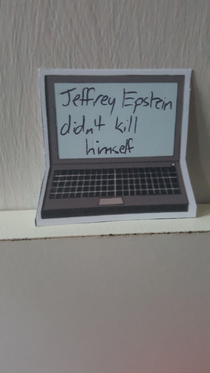 Jeffrey Epstein
didn't kill
himself